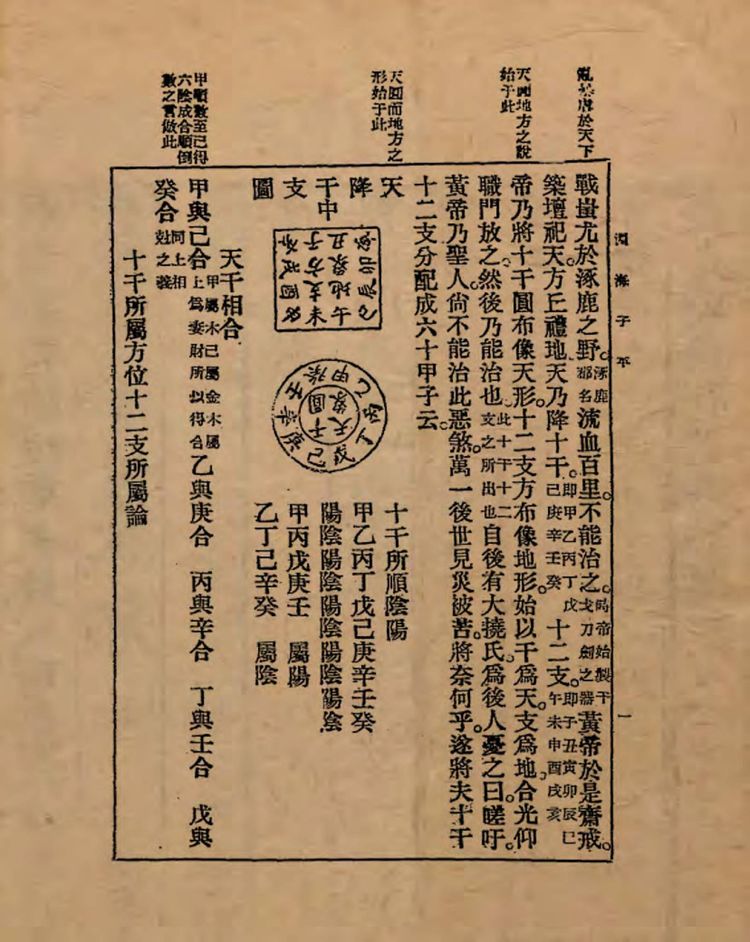 天下
天圓地方之說
始于此
天圓而地方之
形始于此
甲順數至己得
六陰成合順倒
數之言倣此
淵海子平
一
戰蚩尤於涿鹿之野。涿鹿郡名流血百里。不能治之。時帝始製干戈刀劍之器黃帝於是齋戒。
築壇祀天。方丘禮地。天乃降十干。即甲乙丙丁戊己庚辛壬癸十二支。即子丑寅卯辰巳午未申酉戌亥
帝乃將十干圓布像天形。十二支方布像地形。始以干爲天。支爲地。合光仰
職門放之。然後乃能治也。此十干十二支之所出也自後有大撓氏。爲後人憂之曰。嗟吁。
黃帝乃聖人。尙不能治此惡煞。萬一後世見災被苦。將奈何乎。遂將夫十干
十二支分配成六十甲子云。
天降干支圖
中
天干圓象
甲乙丁戊己庚辛壬癸
十干所順陰陽
甲乙丙丁戊己庚辛壬癸
陽陰陽陰陽陰陽陰陽陰
甲丙戊庚壬 屬陽
乙丁己辛癸 屬陰
天干相合
甲與己合甲屬木己屬金木屬上爲妻財所以得合乙與庚合 丙與辛合 丁與壬合 戊與
癸合同上相尅之義
十干所屬方位十二支所屬論